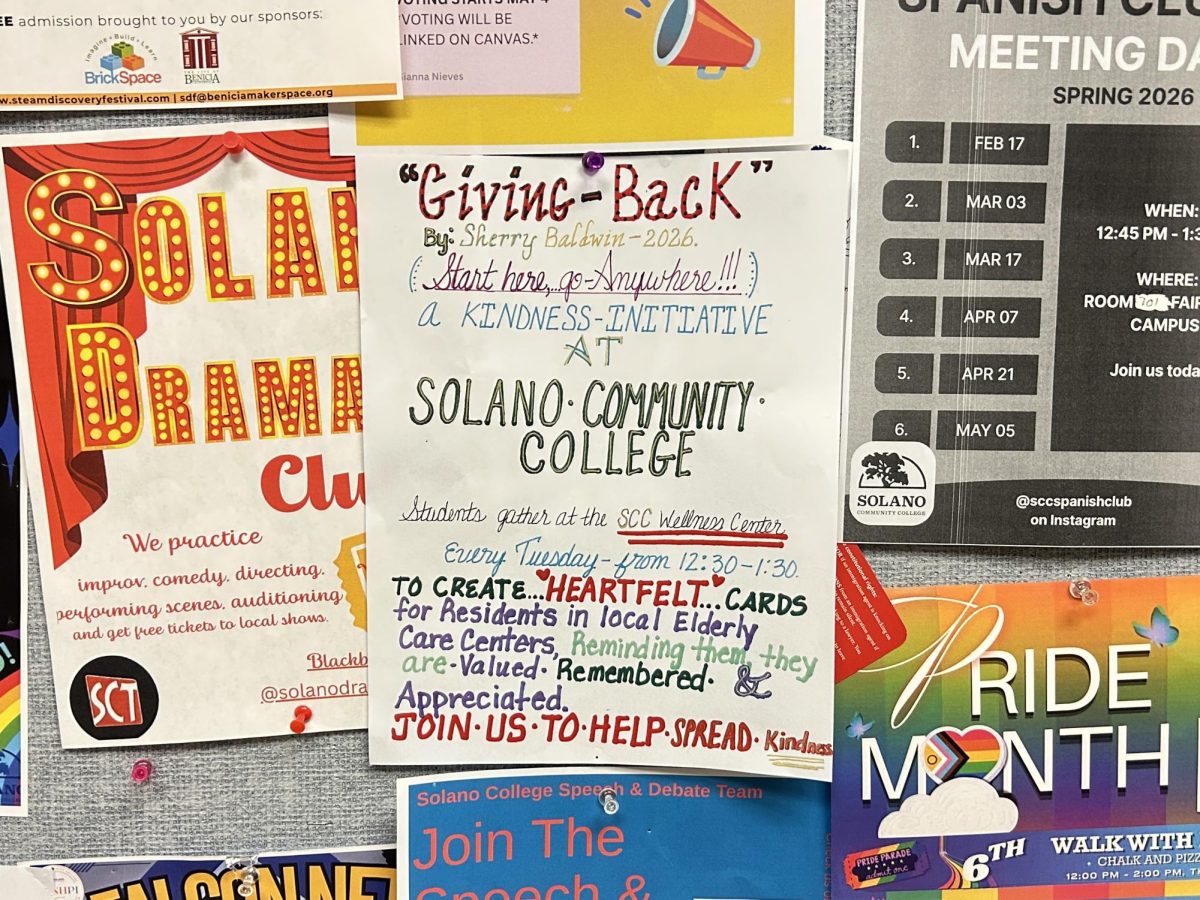 EE admission brought to you by our sponsors:
Imagine • Build • Learn
BrickSpace
THE CITY OF
BENICIA
www.steamdiscoveryfestival.com | sdf@beniciamakerspace.org
VOTING STARTS MAY 4
*VOTING WILL BE
LINKED ON CANVAS.*
Gianna Nieves
SPANISH CLU
MEETING DA
SPRING 2026
1. FEB 17
2. MAR 03
3. MAR 17
4. APR 07
5. APR 21
6. MAY 05
WHEN:
12:45 PM - 1:3
WHERE:
ROOM 701 FAIR
CAMPUS
Join us toda
SOLANO
COMMUNITY COLLEGE
@sccspanishclub
on Instagram
SOLAN
DRAMA
Clu
We practice
improv, comedy, directing,
performing scenes, auditioning
and get free tickets to local shows.
Blackb
@solanodra
SCT
"Giving-Back"
By: Sherry Baldwin-2026.
(Start here,...go-Anywhere!!!)
a KINDNESS-INITIATIVE
AT
SOLANO·COMMUNITY·
COLLEGE
Students gather at the SCC Wellness Center
Every Tuesday-from 12:30-1:30.
TO CREATE...HEARTFELT...CARDS
for Residents in local Elderly
Care Centers, Reminding them, they
are·Valued·Remembered· &
Appreciated.
JOIN·US·TO·HELP·SPREAD·Kindness
PRIDE
MONTH
PRIDE PARADE
admit one
6TH
WALK WITH
• CHALK AND PIZZ
12:00 PM - 2:00 PM, TH
Solano College Speech & Debate Team
Join The
Speech &